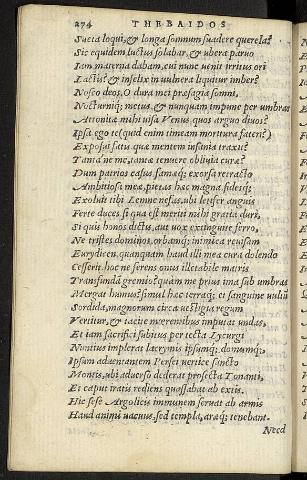 274 THEBAIDOS
Sueta loqui, & longa somnum suadere querela?
Sic equidem luctus solabar, & ubera paruo
Iam materna dabam, cui nunc uenit irritus ori
Lactis? & infelix in uulnera liquitur imber?
Nosco deos, O dura mei præsagia somni,
Nocturniq; metus, & nunquam impune per umbras
Attonitæ mihi uisa Venus quos arguo diuos?
Ipsa ego te (quid enim timeam moritura fateri?)
Exposui fatis quæ mentem insania traxit?
Tanta'ne me, tantæ tenuere obliuia curæ?
Dum patrios casus famamq; exorsa retracto
Ambitiosa meæ, pietas hæc magna, fidesq;
Exolui tibi Lemne nefas, ubi letifer anguis
Ferte duces, si qua est meriti mihi gratia duri,
Si quis honos dictis, aut uox extinguite ferro,
Ne tristes dominos, orbamq; inimica reuisam
Eurydicen, quanquam haud illi mea cura dolendo
Cesserit. hoc ne ferens onus illetabile matris
Transfundā gremio? quam me prius ima sub umbras
Mergat humus? simul hæc terraq; et sanguine uultū
Sordida, magnorum circa uestigia regum
Vertitur, & tacite mœrentibus imputat undas,
Et iam sacrifici subitus per tecta Lycurgi
Nontius implerat lacrymis ipsumq; domumq;.
Ipsum aduentantem Persei uertice sancto
Montis, ubi aduerso dederat prosecta Tonanti,
Et caput iratis rediens quassabat ab extis.
Hic sese Argolicis immunem seruat ab armis
Haud animi uacuus, sed templa, aræq; tenebant.
Necd